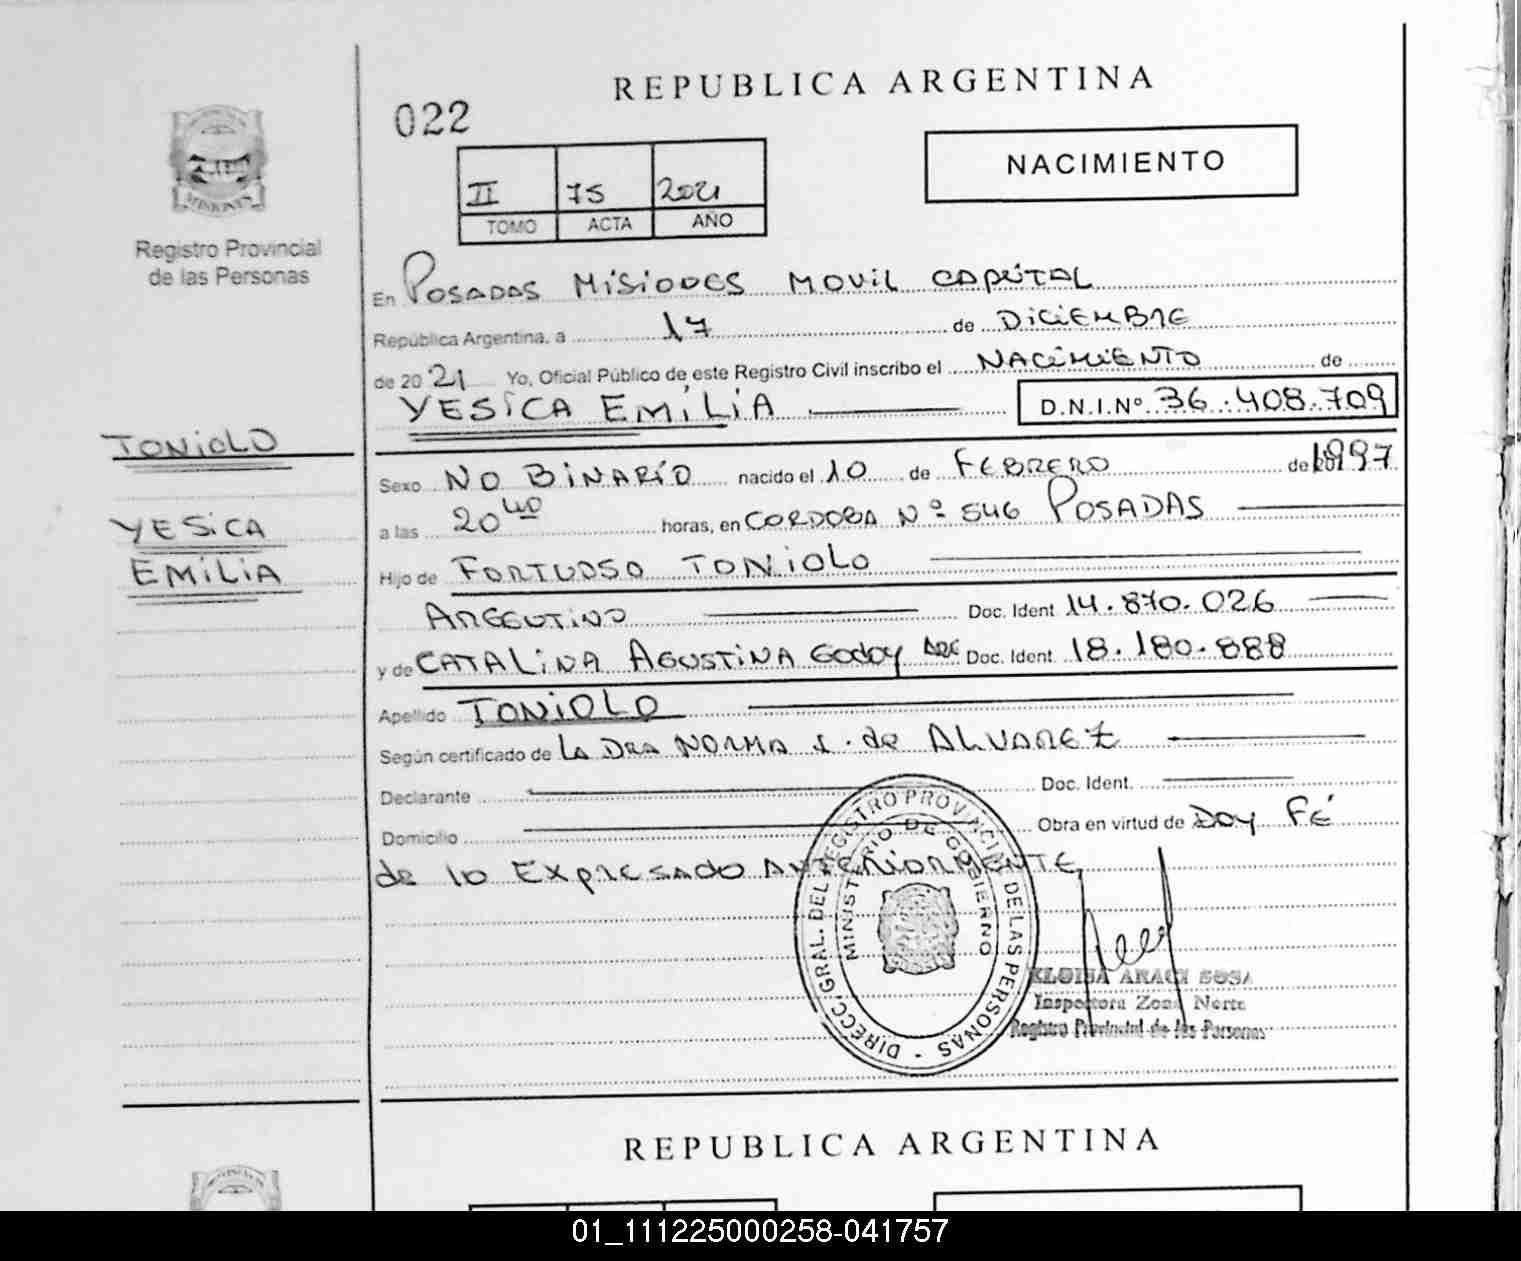 REPUBLICA ARGENTINA
022
NACIMIENTO
II 75 2021
TOMO ACTA AÑO
MISIONES
Registro Provincial
de las Personas
En POSADAS MISIONES MOVIL CAPITAL
República Argentina, a 17 de DICIEMBRE
de 2021 Yo, Oficial Público de este Registro Civil inscribo el NACIMIENTO de
YESICA EMILIA D.N.I.Nº 36.408.709
TONIOLO
YESICA
EMILIA
Sexo NO BINARIO nacido el 10 de FEBRERO de 1997
a las 20 40 horas, en CORDOBA Nº 546 POSADAS
Hijo de FORTUOSO TONIOLO
ARGENTINO Doc. Ident. 14.870.026
y de CATALINA AGUSTINA GODOY ARG Doc. Ident. 18.180.888
Apellido TONIOLO
Según certificado de LA DRA NORMA I. de ALVAREZ
Declarante Doc. Ident.
Domicilio Obra en virtud de DOY FÉ
de lo EXPRESADO ANTERIORMENTE
DIRECC. GRAL. DEL REGISTRO PROVINCIAL DE LAS PERSONAS
MINISTERIO DE GOBIERNO
ARACI SOSA
Inspectora Zona Norte
Registro Provincial de las Personas
REPUBLICA ARGENTINA
01_111225000258-041757